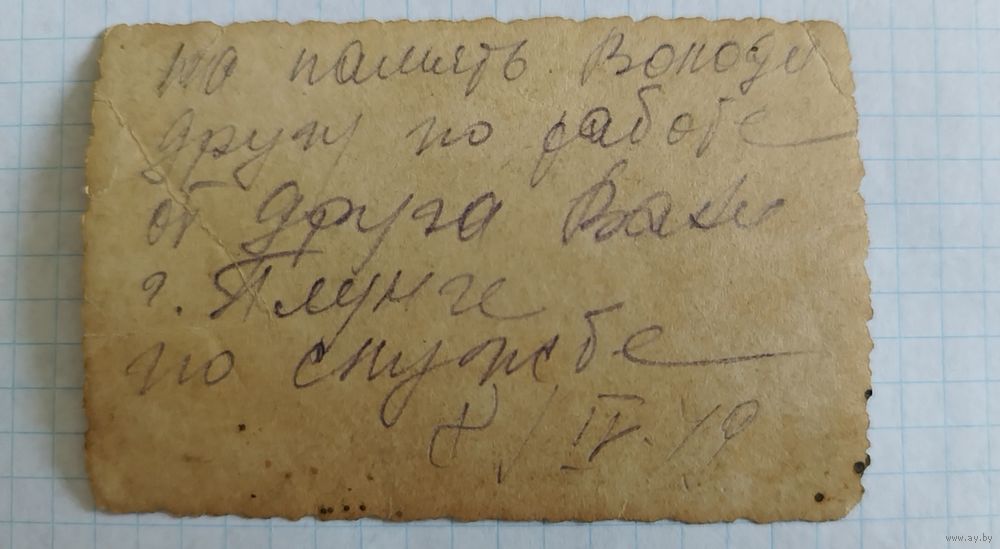 на память Володи
другу по работе
от друга Вани
г. Плунге
по службе
8/IV.49
www.ay.by